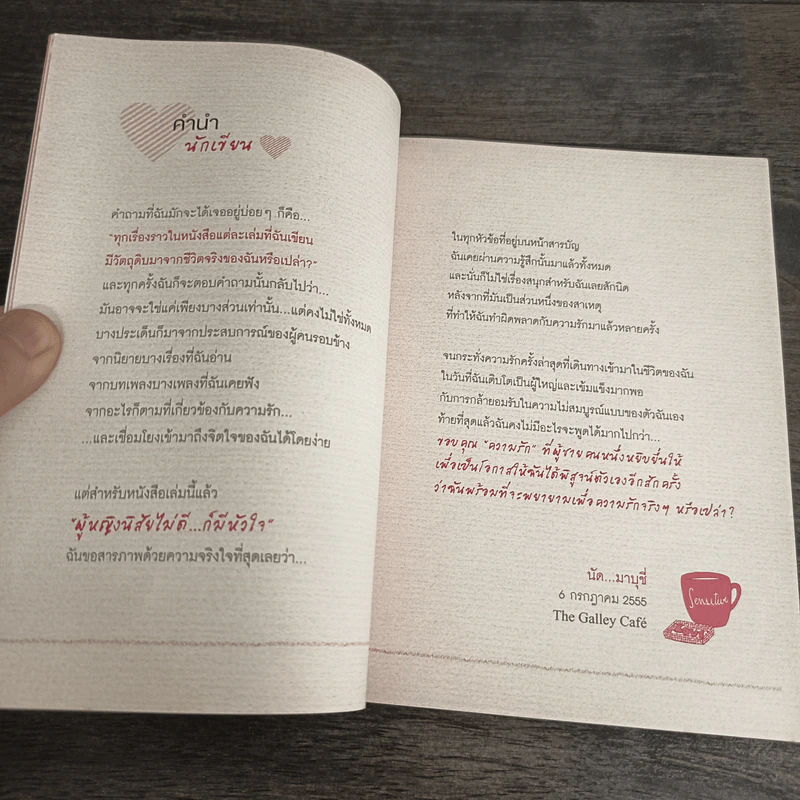 คำนำ
นักเขียน
คำถามที่ฉันมักจะได้เจออยู่บ่อยๆ ก็คือ...
"ทุกเรื่องราวในหนังสือแต่ละเล่มที่ฉันเขียน
มีวัตถุดิบมาจากชีวิตจริงของฉันหรือเปล่า?"
และทุกครั้งฉันก็จะตอบคำถามนั้นกลับไปว่า...
มันอาจจะใช่แค่เพียงบางส่วนเท่านั้น...แต่คงไม่ใช่ทั้งหมด
บางประเด็นก็มาจากประสบการณ์ของผู้คนรอบข้าง
จากนิยายบางเรื่องที่ฉันอ่าน
จากบทเพลงบางเพลงที่ฉันเคยฟัง
จากอะไรก็ตามที่เกี่ยวข้องกับความรัก...
...และเชื่อมโยงเข้ามาถึงจิตใจของฉันได้โดยง่าย
แต่สำหรับหนังสือเล่มนี้แล้ว
"ผู้หญิงนิสัยไม่ดี...ก็มีหัวใจ"
ฉันขอสารภาพด้วยความจริงใจที่สุดเลยว่า...
ในทุกหัวข้อที่อยู่บนหน้าสารบัญ
ฉันเคยผ่านความรู้สึกนั้นมาแล้วทั้งหมด
และนั่นก็ไม่ใช่เรื่องสนุกสำหรับฉันเลยสักนิด
หลังจากที่มันเป็นส่วนหนึ่งของสาเหตุ
ที่ทำให้ฉันทำผิดพลาดกับความรักมาแล้วหลายครั้ง
จนกระทั่งความรักครั้งล่าสุดที่เดินทางเข้ามาในชีวิตของฉัน
ในวันที่ฉันเติบโตเป็นผู้ใหญ่และเข้มแข็งมากพอ
กับการกล้ายอมรับในความไม่สมบูรณ์แบบของตัวฉันเอง
ท้ายที่สุดแล้วฉันคงไม่มีอะไรจะพูดได้มากไปกว่า...
ขอบคุณ "ความรัก" ที่ผู้ชายคนหนึ่งหยิบยื่นให้
เพื่อเป็นโอกาสให้ฉันได้พิสูจน์ตัวเองอีกสักครั้ง
ว่าฉันพร้อมที่จะพยายามเพื่อความรักจริงๆ หรือเปล่า?
นัด...มาบุชี่
6 กรกฎาคม 2555
The Galley Café
Sensitive